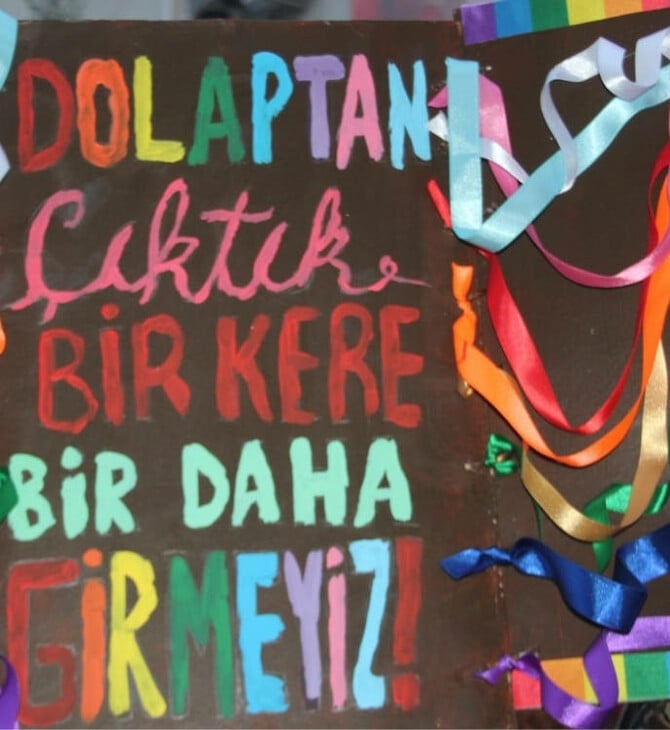 DOLAPTAN
Çıktık
BİR KERE
BİR DAHA
GİRMEYİZ!